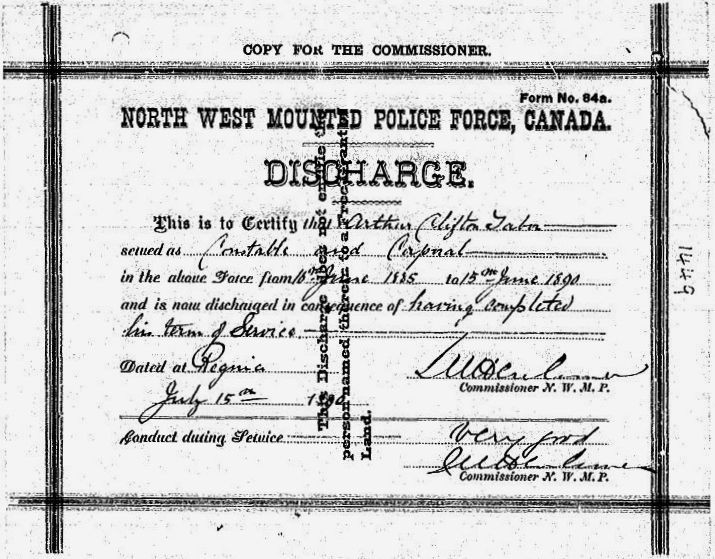 COPY FOR THE COMMISSIONER.
Form No. 64a.
NORTH WEST MOUNTED POLICE FORCE, CANADA.
DISCHARGE.
This is to Certify that Arthur Clifton Tabor
served as Constable and Corporal
in the above Force from 16th June 1885 to 15th June 1890
and is now discharged in consequence of having completed
his term of Service
Dated at Regina
Commissioner N. W. M. P.
July 15th 1890
Conduct during Service Very good
Commissioner N. W. M. P.
This Discharge does not entitle the
person named therein to a Free Grant
Land.
1449